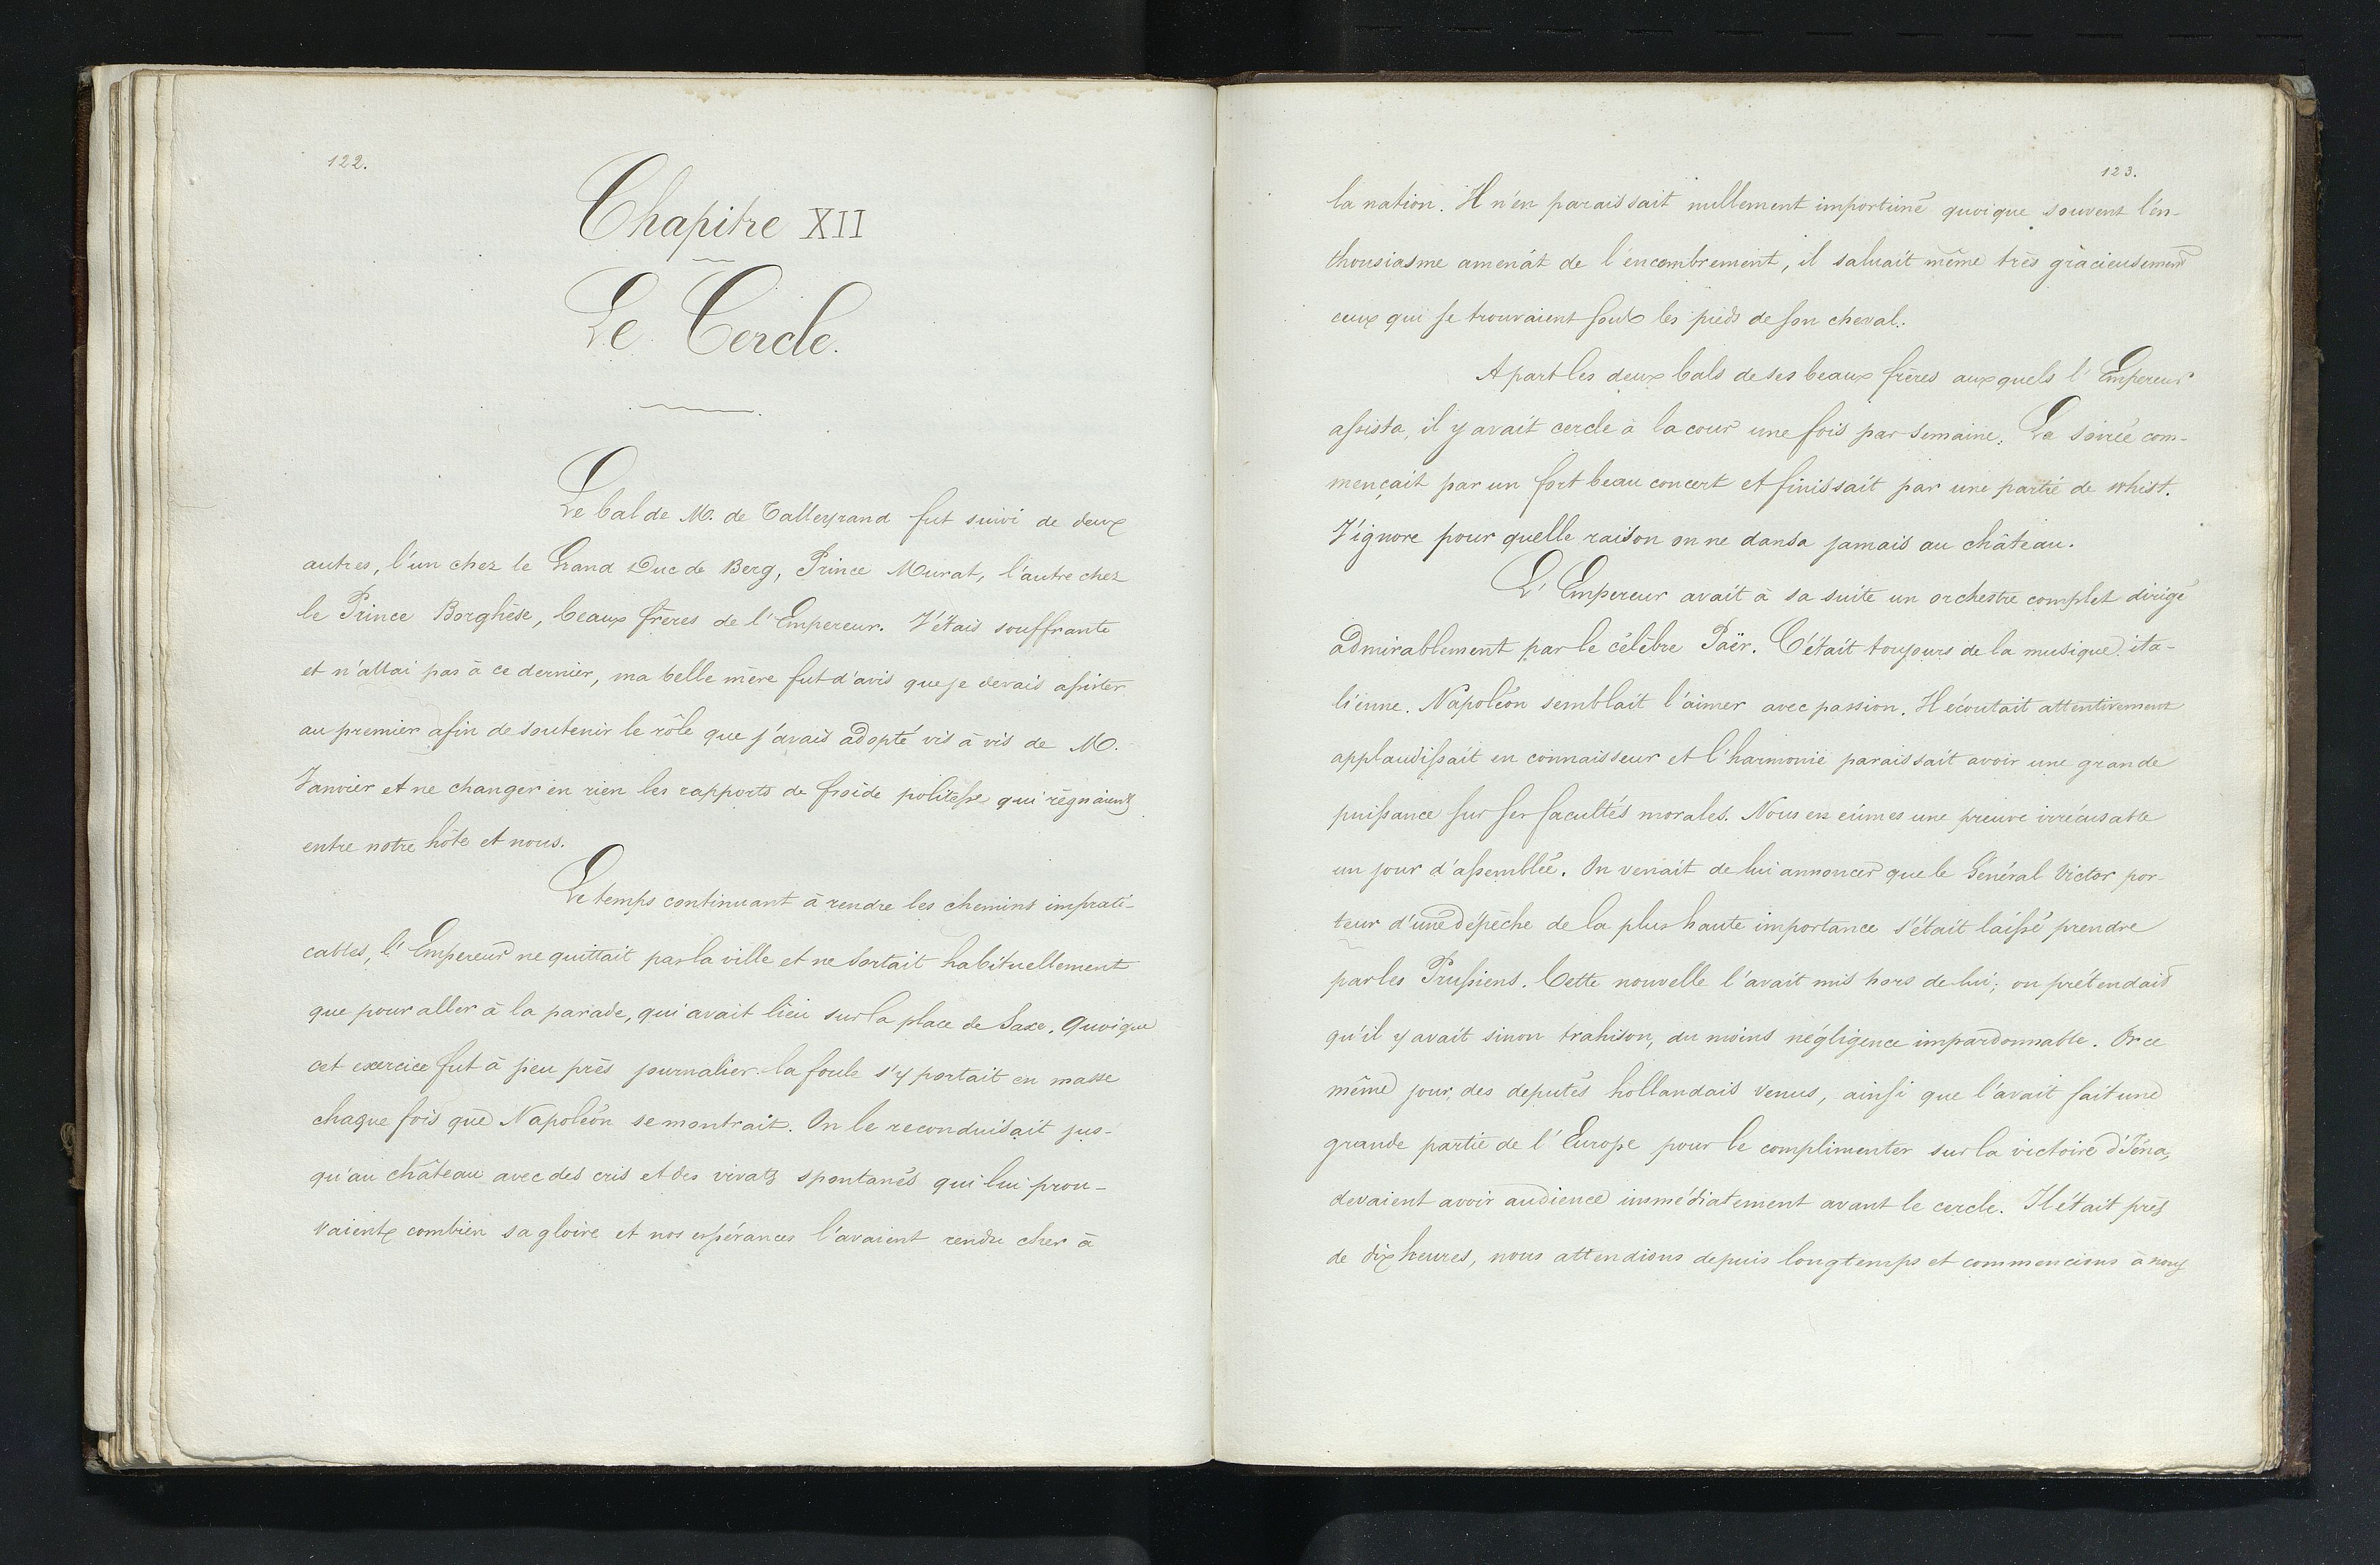 122.
Chapitre XII
Le Cercle.
Le bal de M. de Talleyrand fut suivi de deux
autres, l'un chez le Grand Duc de Berg, Prince Murat, l'autre chez
le Prince Borghèse, beaux frères de l'Empereur. J'étais souffrante
et n'allai pas à ce dernier, ma belle mère fut d'avis que je devais assister
au premier afin de soutenir le rôle que j'avais adopté vis à vis de M.
Janvier et ne changer en rien les rapports de froide politesse qui règnaient
entre notre hôte et nous.
Le temps continuant à rendre les chemins imprati-
cables, l'Empereur ne quittait pas la ville et ne sortait habituellement
que pour aller à la parade, qui avait lieu sur la place de Saxe. Quoique
cet exercice fut à peu près journalier la foule s'y portait en masse
chaque fois que Napoléon se montrait. On le reconduisait jus-
qu'au château avec des cris et des vivats spontanés qui lui prou-
vaient combien sa gloire et nos espérances l'avaient rendu cher à
123.
la nation. Il n'en paraissait nullement importuné quoique souvent l'en-
thousiasme amenât de l'encombrement, il saluait même très gracieusement
ceux qui se trouvaient sous les pieds de son cheval.
A part les deux bals de ses beaux frères auxquels l'Empereur
assista, il y avait cercle à la cour une fois par semaine. La soirée com-
mençait par un fort beau concert et finissait par une partie de whist.
J'ignore pour quelle raison on ne dansa jamais au château.
L'Empereur avait à sa suite un orchestre complet dirigé
admirablement par le célèbre Paër. C'était toujours de la musique ita-
lienne. Napoléon semblait l'aimer avec passion. Il écoutait attentivement
applaudissait en connaisseur et l'harmonie paraissait avoir une grande
puissance sur ses facultés morales. Nous en eûmes une preuve irrécusable
un jour d'assemblée. On venait de lui annoncer que le Général Victor por-
teur d'une dépêche de la plus haute importance s'était laissé prendre
par les Prussiens. Cette nouvelle l'avait mis hors de lui; on prétendait
qu'il y avait sinon trahison, du moins négligence impardonnable. Or ce
même jour, des deputés hollandais venus, ainsi que l'avait fait une
grande partie de l'Europe pour le complimenter sur la victoire d'Jéna,
devaient avoir audience immédiatement avant le cercle. Il était près
de dix heures, nous attendions depuis longtemps et commencions à nous